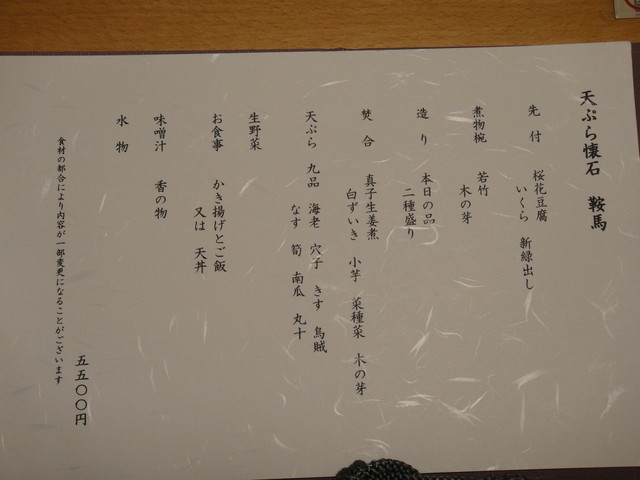 天ぷら懐石 鞍馬
先付 桜花豆腐
いくら 新緑出し
煮物椀 若竹
木の芽
造り 本日の品
二種盛り
焚合 真子生姜煮
白ずいき 小芋 菜種菜 木の芽
天ぷら 九品 海老 穴子 きす 烏賊
なす 筍 南瓜 丸十
生野菜
お食事 かき揚げとご飯
又は 天丼
味噌汁 香の物
水物
五五〇〇円
食材の都合により内容が一部変更になることがございます